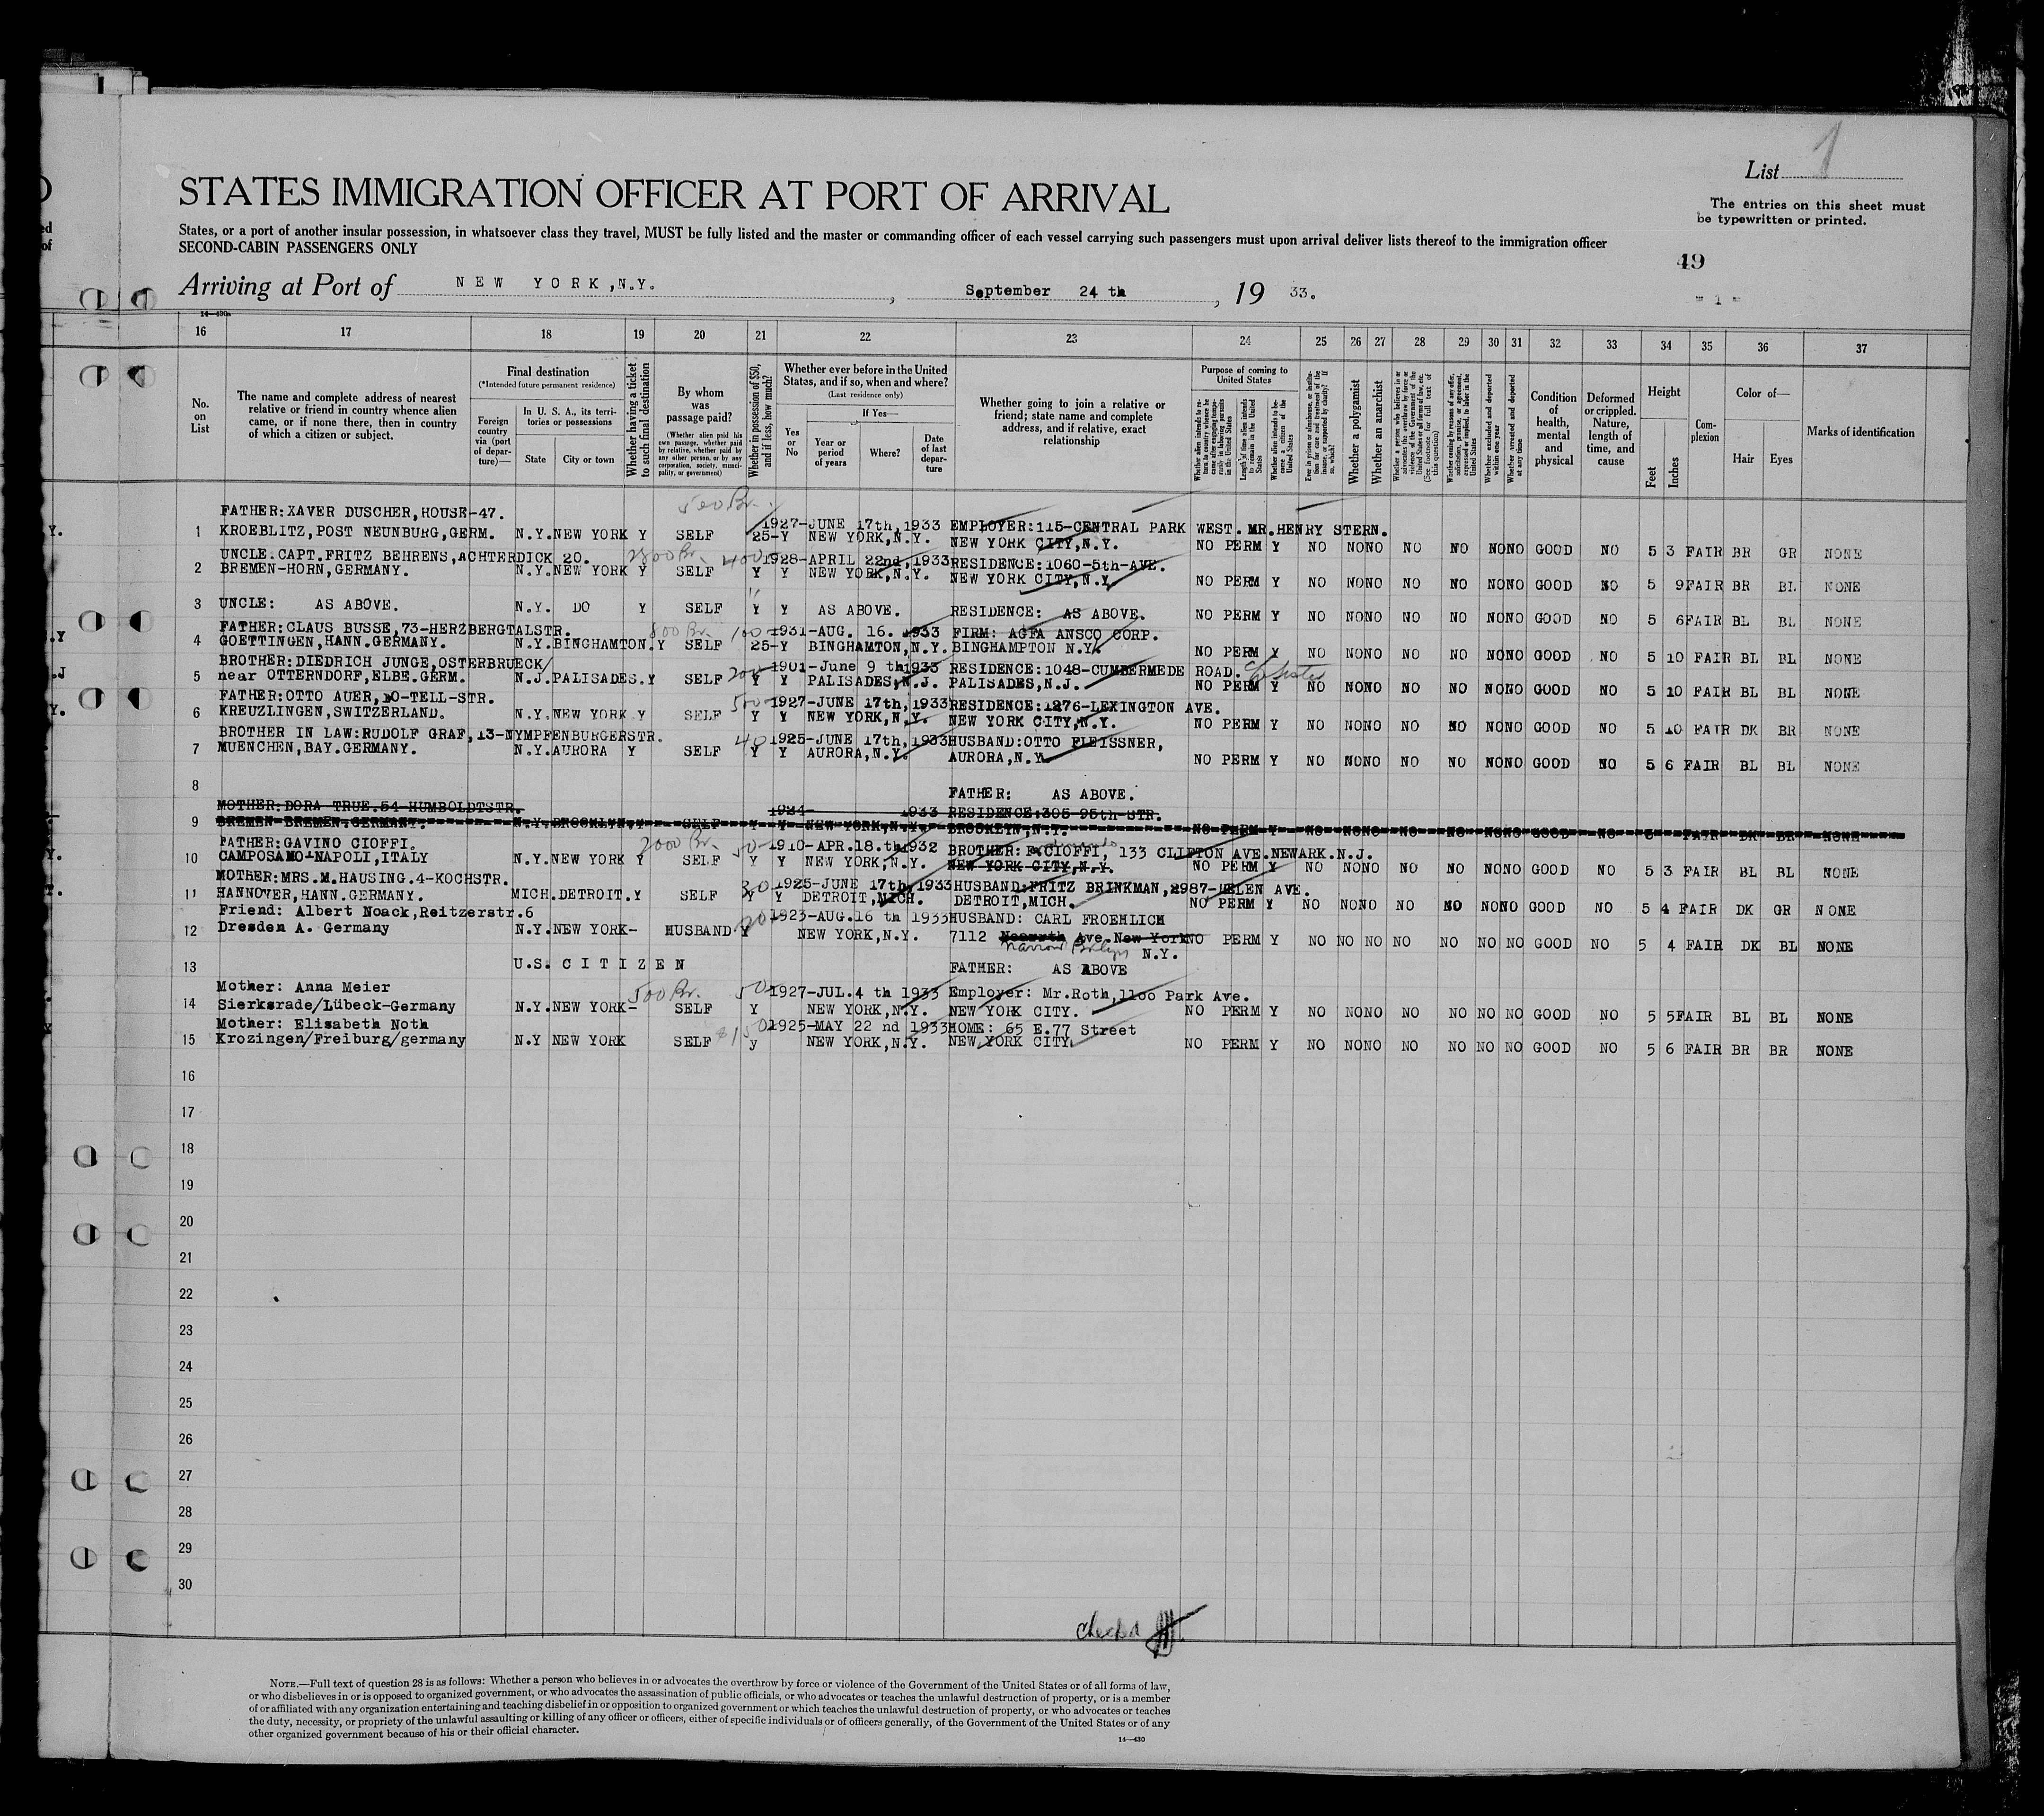 List 1
The entries on this sheet must
be typewritten or printed.
STATES IMMIGRATION OFFICER AT PORT OF ARRIVAL
States, or a port of another insular possession, in whatsoever class they travel, MUST be fully listed and the master or commanding officer of each vessel carrying such passengers must upon arrival deliver lists thereof to the immigration officer
SECOND-CABIN PASSENGERS ONLY
49
Arriving at Port of NEW YORK,N.Y. , September 24 th , 19 33.
- 1 -
14—430
16 17 18 19 20 21 22 23 24 25 26 27 28 29 30 31 32 33 34 35 36 37
No. on List
The name and complete address of nearest relative or friend in country whence alien came, or if none there, then in country of which a citizen or subject.
Final destination
(*Intended future permanent residence)
Foreign country via (port of departure)—
In U. S. A., its territories or possessions
State
City or town
Whether having a ticket to such final destination
By whom was passage paid?
(Whether alien paid his own passage, whether paid by relative, whether paid by any other person, or by any corporation, society, municipality, or government)
Whether in possession of $50, and if less, how much?
Whether ever before in the United States, and if so, when and where?
(Last residence only)
Yes or No
If Yes—
Year or period of years
Where?
Date of last departure
Whether going to join a relative or friend; state name and complete address, and if relative, exact relationship
Purpose of coming to United States
Whether a polygamist
Whether an anarchist
Whether excluded and deported within one year
Whether arrested and deported at any time
Condition of health, mental and physical
Deformed or crippled. Nature, length of time, and cause
Height
Feet
Inches
Complexion
Color of—
Hair
Eyes
Marks of identification
500 Br.
FATHER:XAVER DUSCHER,HOUSE-47. 1927-JUNE 17th,1933 EMPLOYER:115-CENTRAL PARK WEST. MR.HENRY STERN.
1 KROEBLITZ,POST NEUNBURG,GERM. N.Y.NEW YORK Y SELF 25-Y NEW YORK,N.Y. NEW YORK CITY,N.Y. NO PERM Y NO NONO NO NO NONO GOOD NO 5 3 FAIR BR GR NONE
UNCLE.CAPT.FRITZ BEHRENS,ACHTERDICK 20. 400 1928-APRIL 22nd,1933 RESIDENCE:1060-5th-AVE.
2 BREMEN-HORN,GERMANY. N.Y.NEW YORK Y SELF Y Y NEW YORK,N.Y. NEW YORK CITY,N.Y. NO PERM Y NO NONO NO NO NONO GOOD NO 5 9FAIR BR BL NONE
3 UNCLE: AS ABOVE. N.Y. DO Y SELF Y Y AS ABOVE. RESIDENCE: AS ABOVE. NO PERM Y NO NONO NO NO NONO GOOD NO 5 6FAIR BL BL NONE
FATHER:CLAUS BUSSE,73-HERZBERGTALSTR. 800 Br. 100 1931-AUG. 16. 1933 FIRM: AGFA ANSCO CORP.
4 GOETTINGEN,HANN.GERMANY. N.Y.BINGHAMTON.Y SELF 25-Y BINGHAMTON,N.Y. BINGHAMPTON N.Y. NO PERM Y NO NONO NO NO NONO GOOD NO 5 10 FAIR BL BL NONE
BROTHER:DIEDRICH JUNGE,OSTERBRUECK/ 200 1901-June 9 th1933 RESIDENCE:1048-CUMBERMEDE ROAD.
5 near OTTERNDORF,ELBE.GERM. N.J.PALISADES.Y SELF Y Y PALISADES,N.J. PALISADES,N.J. NO PERM Y NO NONO NO NO NONO GOOD NO 5 10 FAIR BL BL NONE
FATHER:OTTO AUER,10-TELL-STR. 500 1927-JUNE 17th,1933 RESIDENCE:1276-LEXINGTON AVE.
6 KREUZLINGEN,SWITZERLAND. N.Y.NEW YORK Y SELF Y Y NEW YORK,N.Y. NEW YORK CITY,N.Y. NO PERM Y NO NONO NO NO NONO GOOD NO 5 10 FAIR DK BR NONE
BROTHER IN LAW:RUDOLF GRAF,13-NYMPFENBURGERSTR. 40 1925-JUNE 17th,1933 HUSBAND:OTTO FLEISSNER,
7 MUENCHEN,BAY.GERMANY. N.Y.AURORA Y SELF Y Y AURORA,N.Y. AURORA,N.Y. NO PERM Y NO NONO NO NO NONO GOOD NO 5 6 FAIR BL BL NONE
8 FATHER: AS ABOVE.
MOTHER:DORA TRUE.54-HUMBOLDTSTR. 1924- 1933 RESIDENCE:305-95th-STR.
9 BREMEN-BREMEN.GERMANY. N.Y.BROOKLYN.Y SELF Y Y NEW YORK,N.Y. BROOKLYN,N.Y. NO PERM Y NO NONO NO NO NONO GOOD NO 5 FAIR DK BR NONE
FATHER:GAVINO CIOFFI. 2000 Br. 50 1910-APR.18.th1932 BROTHER: CIOFFI, 133 CLIFTON AVE.NEWARK.N.J.
10 CAMPOSAMO-NAPOLI,ITALY N.Y.NEW YORK Y SELF Y Y NEW YORK,N.Y. NEW YORK CITY,N.Y. NO PERM Y NO NONO NO NO NONO GOOD NO 5 3 FAIR BL BL NONE
MOTHER:MRS.M.HAUSING.4-KOCHSTR. 30 1925-JUNE 17th,1933 HUSBAND:FRITZ BRINKMAN,2987-HELEN AVE.
11 HANNOVER,HANN.GERMANY. MICH.DETROIT.Y SELF Y Y DETROIT,MICH. DETROIT,MICH. NO PERM Y NO NONO NO NO NONO GOOD NO 5 4 FAIR DK GR NONE
Friend: Albert Noack,Reitzerstr.6 20 1923-AUG.16 th 1933 HUSBAND: CARL FROEHLICH
12 Dresden A. Germany N.Y.NEW YORK- HUSBAND Y NEW YORK,N.Y. 7112 Ave.New York NO PERM Y NO NO NO NO NO NO NO GOOD NO 5 4 FAIR DK BL NONE
Narrow Brklyn N.Y.
13 U.S. CITIZEN FATHER: AS ABOVE
Mother: Anna Meier 500 Br. 50 1927-JUL.4 th 1933 Employer: Mr.Roth,1100 Park Ave.
14 Sierksrade/Lübeck-Germany N.Y.NEW YORK- SELF Y NEW YORK,N.Y. NEW YORK CITY. NO PERM Y NO NONO NO NO NO NO GOOD NO 5 5FAIR BL BL NONE
Mother: Elisabeth Noth $150 1925-MAY 22 nd 1933 HOME: 65 E.77 Street
15 Krozingen/Freiburg/germany N.Y NEW YORK SELF y NEW YORK,N.Y. NEW YORK CITY. NO PERM Y NO NONO NO NO NO NO GOOD NO 5 6 FAIR BR BR NONE
16
17
18
19
20
21
22
23
24
25
26
27
28
29
30
NOTE.—Full text of question 28 is as follows: Whether a person who believes in or advocates the overthrow by force or violence of the Government of the United States or of all forms of law,
or who disbelieves in or is opposed to organized government, or who advocates the assassination of public officials, or who advocates or teaches the unlawful destruction of property, or is a member
of or affiliated with any organization entertaining and teaching disbelief in or opposition to organized government or which teaches the unlawful destruction of property, or who advocates or teaches
the duty, necessity, or propriety of the unlawful assaulting or killing of any officer or officers, either of specific individuals or of officers generally, of the Government of the United States or of any
other organized government because of his or their official character.
14—430